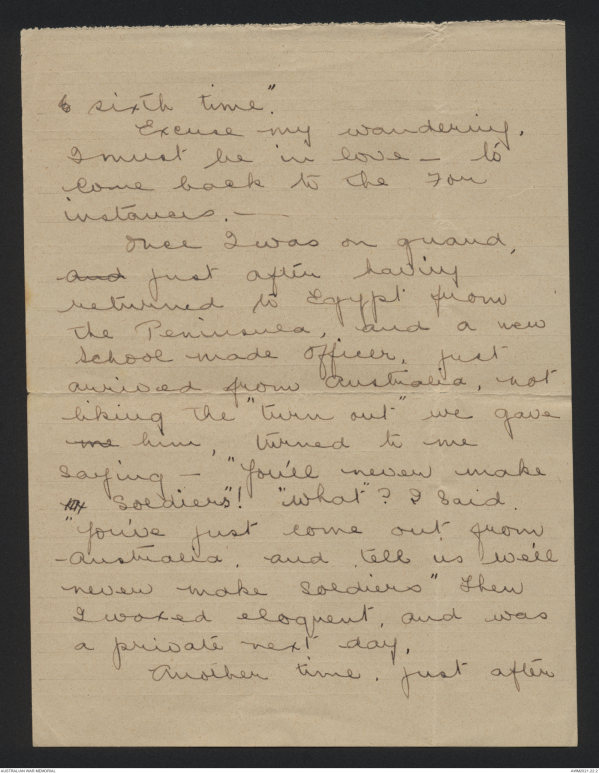 6 sixth time".
Excuse my wandering.
I must be in love — to
come back to the For
instances. —
Once I was on guard,
and just after having
returned to Egypt from
the Peninsula, and a new
school made officer, just
arrived from Australia, not
liking the "turn out" we gave
me him, turned to me
saying — "You'll never make
soldiers"! "What"? I said.
"You've just come out from
Australia, and tell us we'll
never make soldiers" Then
I waxed eloquent, and was
a private next day.
Another time, just after
AUSTRALIAN WAR MEMORIAL
AWM2021.22.2